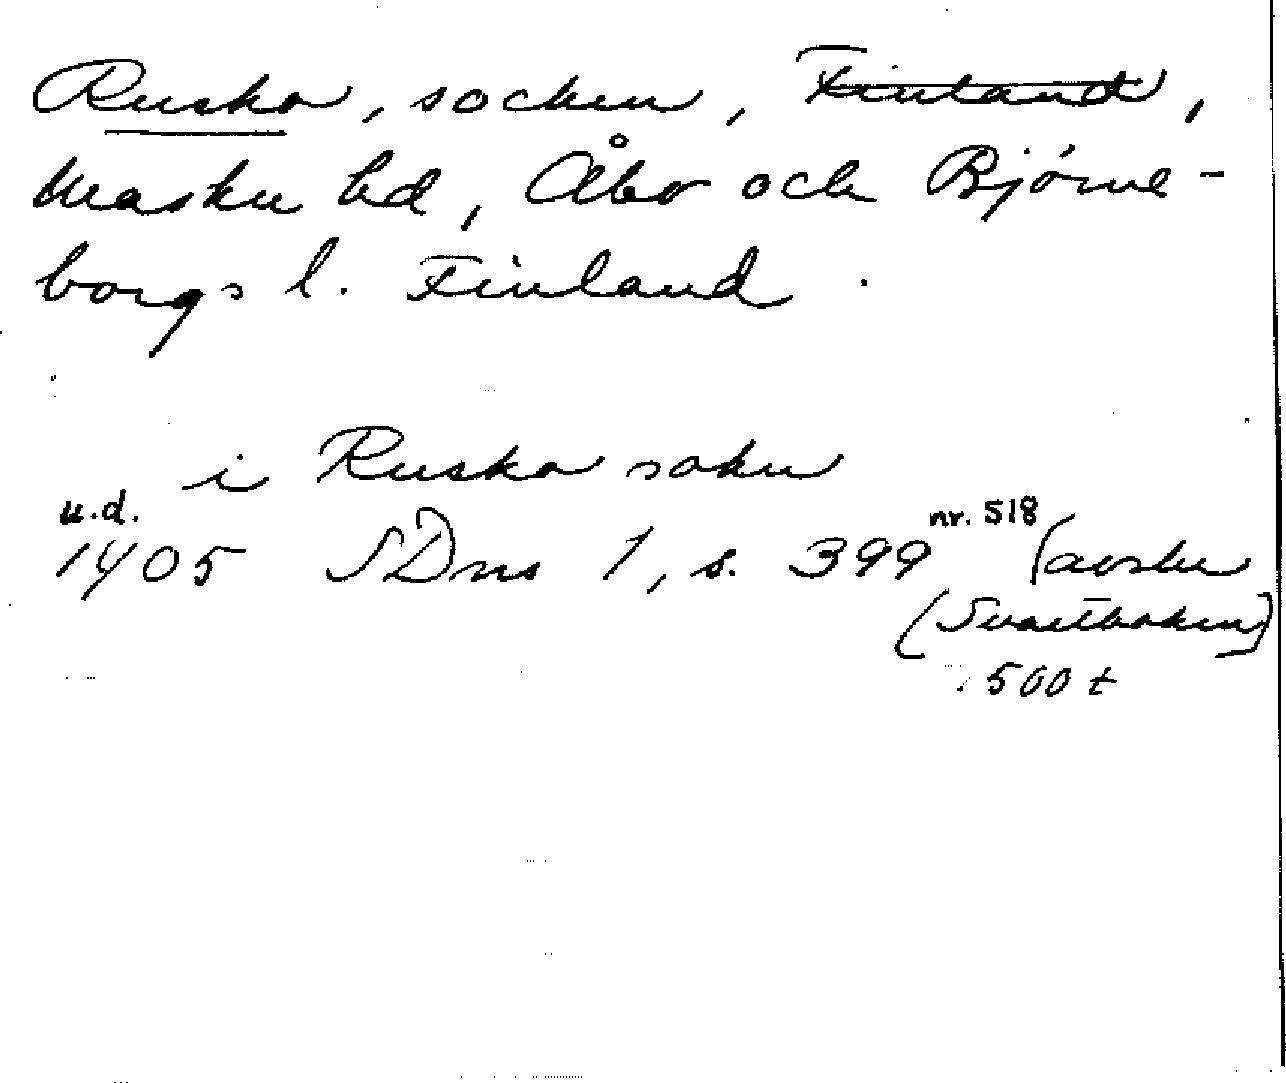 Rusko, socken, Finland,
Masku hd, Åbo och Björne-
borgs l. Finland.
i Rusko sokn
u.d.
1405 SDns 1, s. 399 nr. 518 (avskr
(Svartboken)
500 t